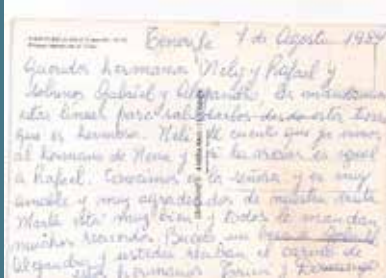 Tenerife 7 de Agosto 1984
Queridos hermanos Nely y Rafael y
sobrinos Gabriel y Alejandro. Os mandamos
estas lineas para saludarlos desde esta tierra
que es hermosa. Neli te cuento que ya vimos
al hermano de Nena y es igual
a Rafael. Conocimos a la señora y es muy
amable y muy agradecidos de nuestra visita
Marta esta muy bien y todos te mandan
muchos recuerdos. Besitos
Alejandro y ustedes reciban el cariño de
estos hermanos